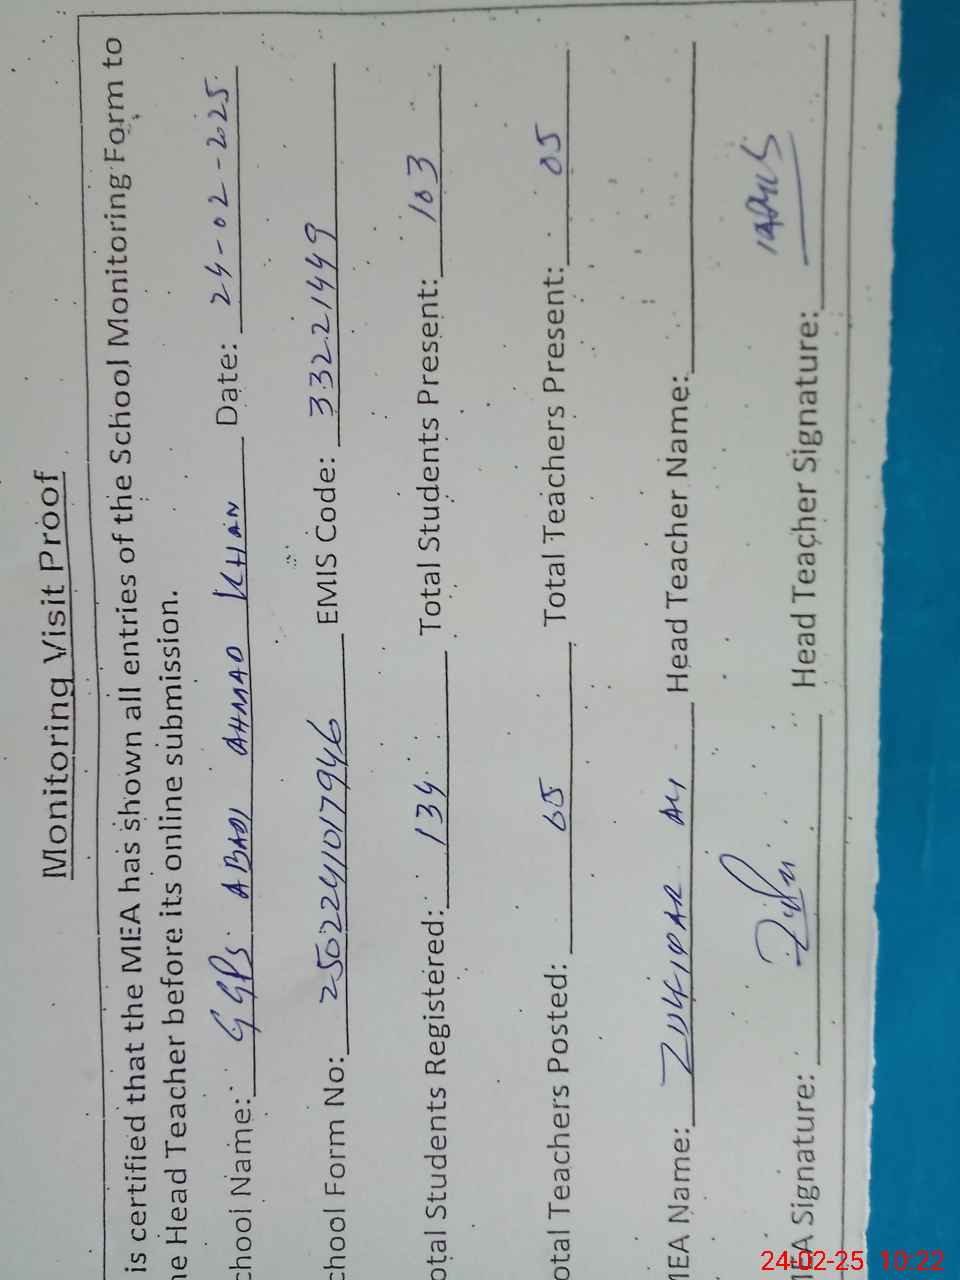 Monitoring Visit Proof
is certified that the MEA has shown all entries of the School Monitoring Form to
he Head Teacher before its online submission.
chool Name: GGPS ABADI AHMAD KHAN Date: 24-02-2025
chool Form No: 2502241017946 EMIS Code: 33221449
otal Students Registered: 134 Total Students Present: 103
otal Teachers Posted: 05 Total Teachers Present: 05
MEA Name: ZULFIQAR ALI Head Teacher Name:
MEA Signature: Head Teacher Signature:
24-02-25 10:22